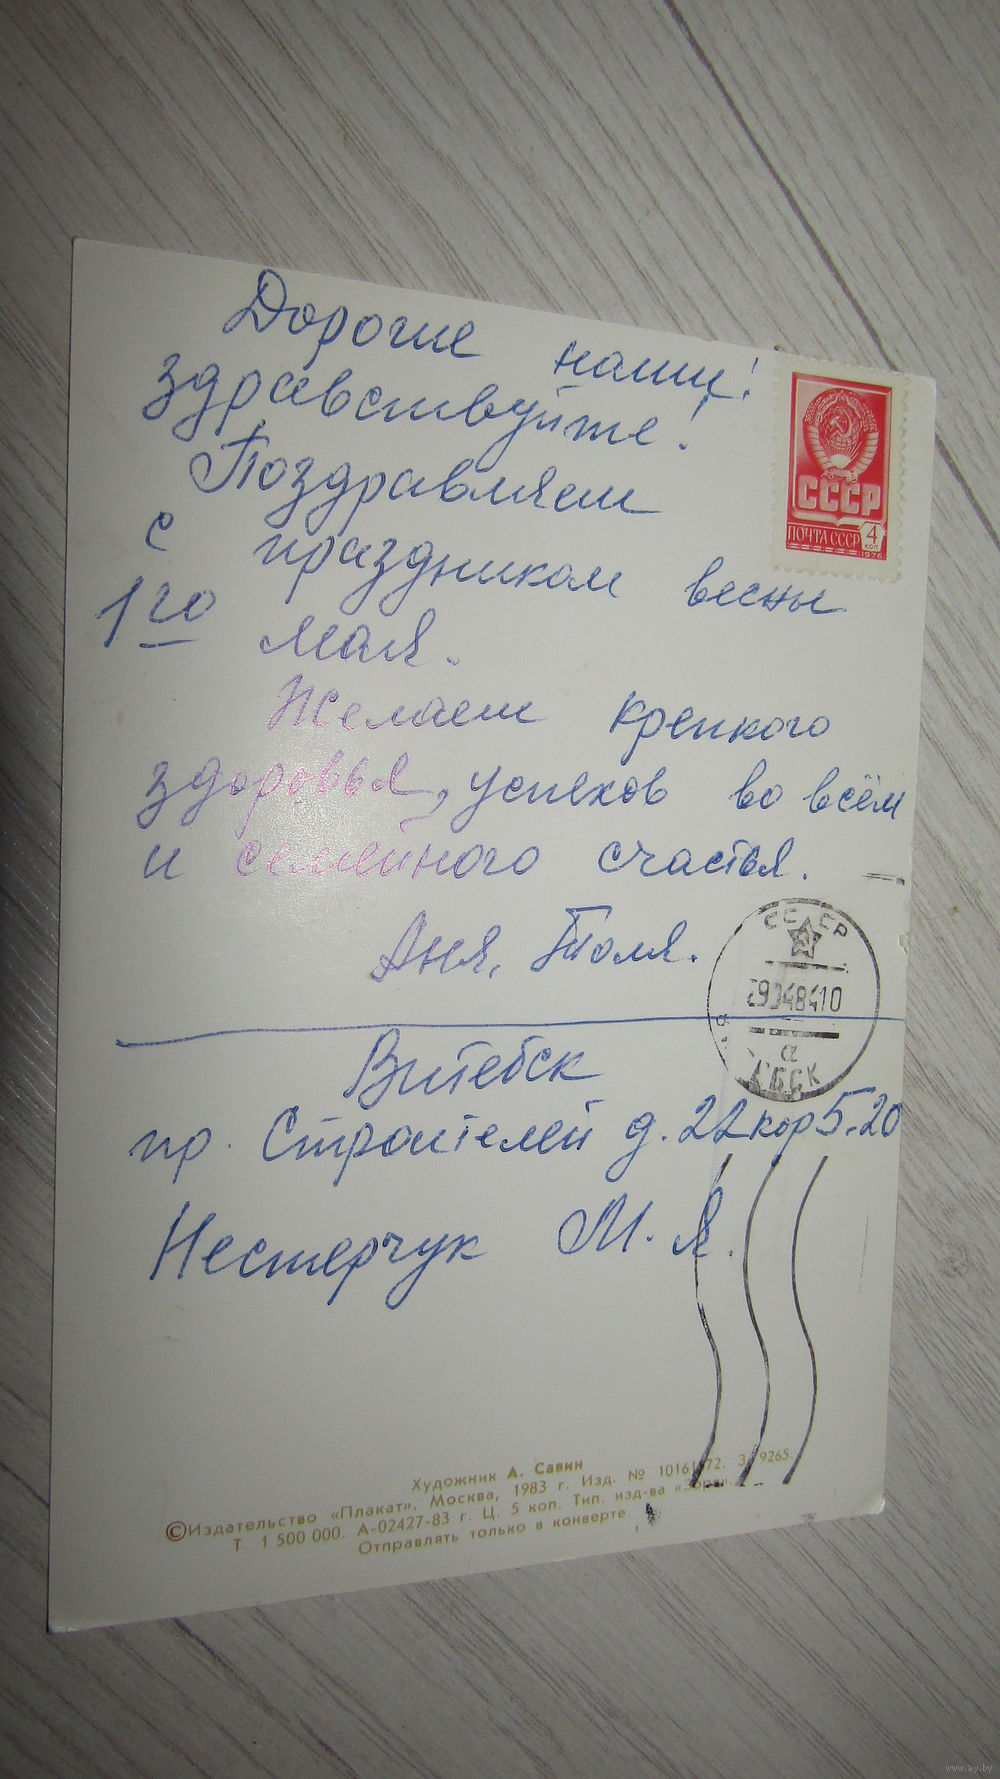 Дорогие наши!
здравствуйте!
Поздравляем
с праздником весны
1го мая.
Желаем крепкого
здоровья, успехов во всём
и семейного счастья.
Аня, Толя.
СССР
ПОЧТА СССР 4 КОП
1976
СССР
29048410
а
Витебск
пр. Строителей д. 22 кор 5-20
Нестерчук М. Я.
Художник А. Савин
©Издательство «Плакат». Москва, 1983 г. Изд. № 9265.
Т. 1 500 000. А-02427-83 г. Ц. 5 коп. Тип. изд-ва
Отправлять только в конверте.
www.ay.by